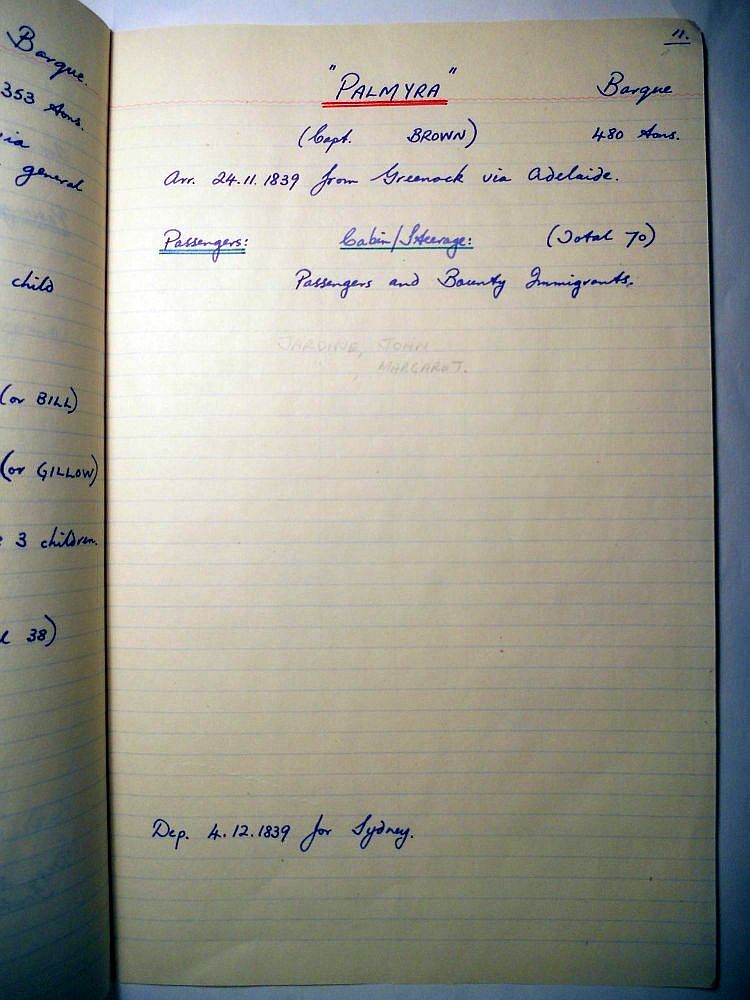 Barque.
353 tons.
via
general
child
(or BILL)
(or GILLOW)
3 children.
38)
11.
"PALMYRA" Barque
(Capt. BROWN) 480 tons.
Arr. 24.11.1839 from Greenock via Adelaide.
Passengers: Cabin/Steerage: (Total 70)
Passengers and Bounty Immigrants.
JARDINE, JOHN
" , MARGARET.
Dep. 4.12.1839 for Sydney.